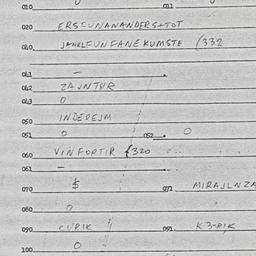 010 0 011 0
020 ERSTUNANANDERS+TOT
040 JANELFUNFANEKUMSTE (332
041 –
042 ZAJNTSIR
043 0
050 INDEREJM
051 0 052 0
060 VINFORTIR £320
061 –
070 071 MIRAJLNZA
080 0
090 CURIK 091 K3-RIK
100 0